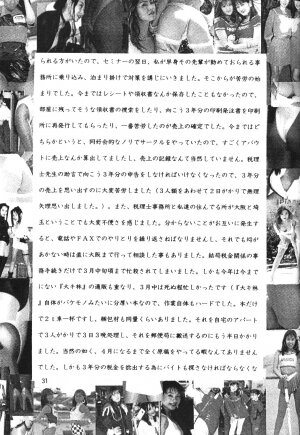 られる方がいたので、セミナーの翌日、私が単身その先輩が勤めておられる事
務所に乗り込み、泊まり掛けで対策を講じにいきました。そこからが苦労の始
まりでした。今まではレシートや領収書なんか保存したこともなかったので、
部屋に残ってそうな領収書の捜索をしたり、向こう3年分の印刷発注書を印刷
所に再発行してもらったり、一番苦労したのが売上の確定でした。今まではど
ちらかというと、同好会的なノリでサークルをやっていたので、すごくアバウ
トに売上なんか算出してましたし、売上の記録なんて当然していません。税理
士先生の助言で向こう3年分の申告をしなければいけなくなったので、3年分
の売上を思い出すのに大変苦労しました(3人額をあわせて2日がかりで無理
矢理思い出しました。)。また、税理士事務所と私達の住んでる所が大阪と埼
玉ということでも大変不便さを感じました。分からないことがお互いに発生す
ると、電話やFAXでのやりとりを繰り返さねばなりませんし、それでも埒が
あかない時は直に大阪まで行って相談した事もありました。結局税金関係の事
務手続きだけで3月中旬頃まで比較されてしまいました。しかも今年は今まで
にない『大キ林』の通販も重なり、3月中は死ぬ程忙しかったです(『大キ林』
』自体がバケモノみたいに分厚い本なので、作業自体もハードでした。本だけ
で2t車一杯ですし、梱包材も同量くらいありました。それを自宅のアパート
で3人がかりで3日3晩処理し、それを郵便局に搬送するのにもう半日かかり
ました。当然の如く、4月になるまで全く原稿をやってる暇なんてありません
でした。しかも3年分の税金を捻出する為にバイトも探さなければならなくな
31